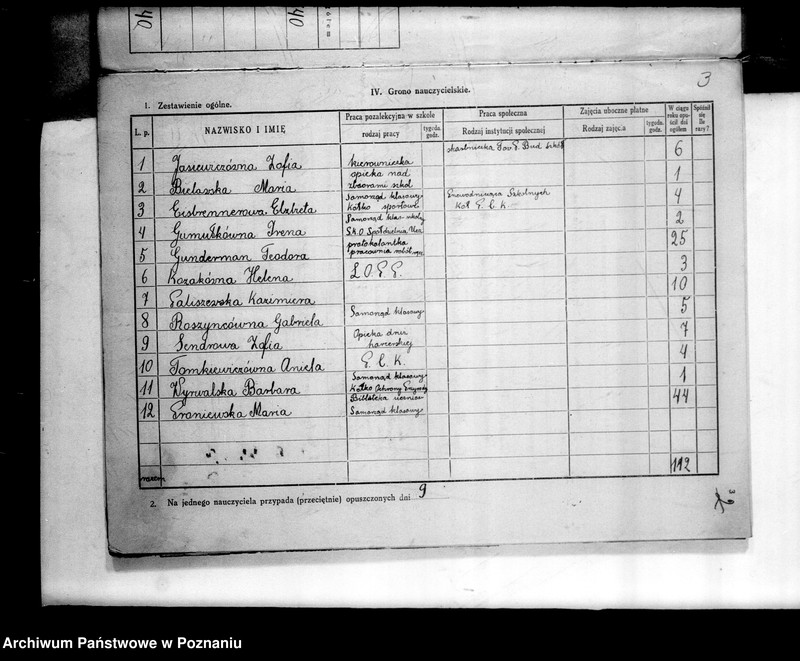 40
40
3
IV. Grono nauczycielskie.
1. Zestawienie ogólne.
L. p.
NAZWISKO I IMIĘ
Praca pozalekcyjna w szkole
rodzaj pracy
tygodn. godz.
Praca społeczna
Rodzaj instytucji społecznej
Zajęcia uboczne płatne
Rodzaj zajęcia
tygodn. godz.
W ciągu roku opuścił dni ogółem
Spóźnił się ile razy?
1 Zofia kierowniczka skarbniczka Tow. P. Bud. Szkół 6
2 Bielawska Maria opieka nad zbiorami szkol 1
3 Eisbrennerowa Elżbieta Samorząd klasowy Kółko sportowe Przewodnicząca Szkolnych Kół P. C. K. 4
4 Gumułkówna Irena Samorząd klas. S.K.O. Spółdzielnia 2
5 Gunderman Teodora protokolantka pracownia robót 25
6 Kozakówna Helena L O P P. 3
7 Paliszewska Kazimiera 10
8 Roszyncówna Gabriela Samorząd klasowy 5
9 Sendrowa Zofia Opieka harcerskiej 7
10 Tomkiewiczówna Aniela P. C. K. 4
11 Wyrwalska Barbara Samorząd klasowy Kółko Ochrony Przyrody 1
12 Praniewska Maria Biblioteka uczniow Samorząd klasowy 44
razem 112
2. Na jednego nauczyciela przypada (przeciętnie) opuszczonych dni 9
Archiwum Państwowe w Poznaniu